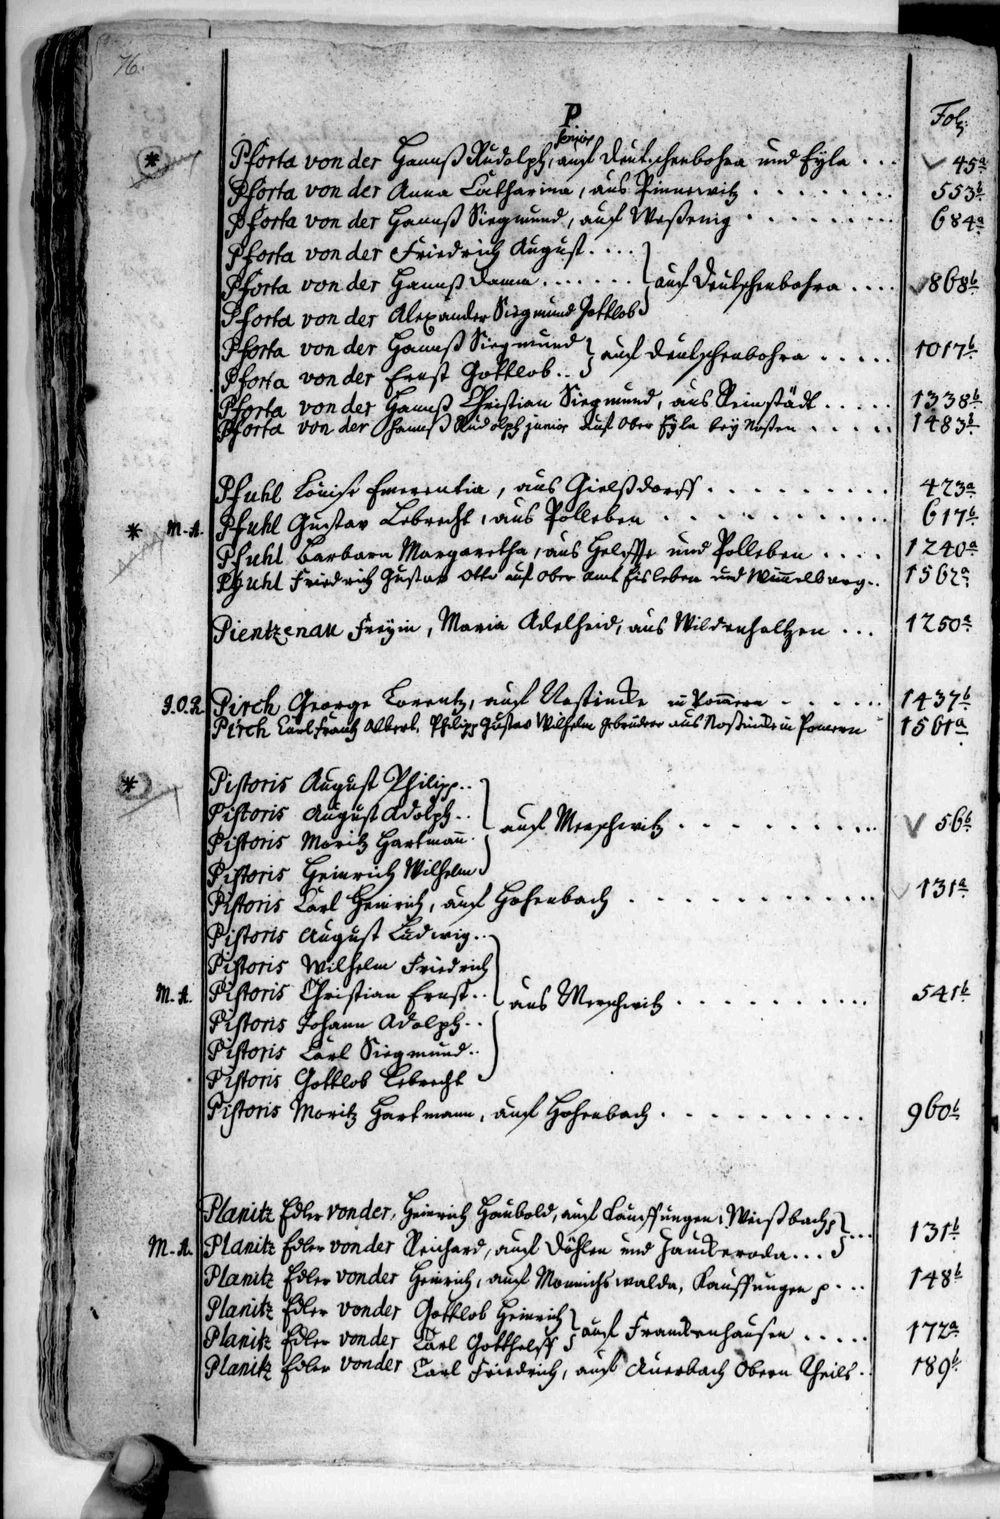 76.
P
Fol:
senior
* Pforta von der Hannß Rudolph, auf Deutschenbohra und Eyla . . . 45a
Pforta von der Anna Catharina, aus Pinnewitz . . . 553b
Pforta von der Hannß Siegmund, auf Weßenig . . . 684a
Pforta von der Friedrich August . . .
Pforta von der Hannß Damm . . . auf Deutschenbohra . . . 868b
Pforta von der Alexander Siegmund Gottlob
Pforta von der Hannß Siegmund auf Deutschenbohra . . . 1017b
Pforta von der Ernst Gottlob . .
Pforta von der Hannß Christian Siegmund, aus Reinstädt . . . 1338b
Pforta von der Hannß Rudolph junior auf Ober Eyla bey Noßen . . . 1483b
Pfuhl Louise Emerentia, aus Gielßdorff . . . 423a
* M. A. Pfuhl Gustav Lebrecht, aus Polleben . . . 617b
Pfuhl Barbara Margaretha, aus Helffte und Polleben . . . 1240a
Pfuhl Friedrich Gustav Otto auf Ober Amt Eisleben und Wimelburg . . 1562a
Pientzenau Freyin, Maria Adelheid, aus Wildenholtzen . . . 1250a
J. O. R. Pirch George Lorentz, auf Nestincke in Pommern . . . 1437b
Pirch Carl Frantz Albert, Philipp Gustav Wilhelm Gebrüdere aus Nostincke in Pomern 1561a
* Pistoris August Philipp . .
Pistoris August Adolph . . auf Merschwitz . . . 56b
Pistoris Moritz Hartmann
Pistoris Heinrich Wilhelm
Pistoris Carl Heinrich, auf Hohenbach . . . 131a
Pistoris August Ludwig . .
Pistoris Wilhelm Friedrich
M. A. Pistoris Christian Ernst . . aus Merschwitz . . . 541b
Pistoris Johann Adolph . .
Pistoris Carl Siegmund . .
Pistoris Gottlob Lebrecht
Pistoris Moritz Hartmann, auf Hohenbach . . . 960b
Planitz Edler von der, Heinrich Haubold, auf Kauffungen, Weißbach p . . . 131b
M. A. Planitz Edler von der Reichard, auf Döhlen und Zauckeroda . . .
Planitz Edler von der Heinrich, auf Mannichswalda, Kauffungen p . . . 148b
Planitz Edler von der Gottlob Heinrich auf Franckenhausen . . . 172a
Planitz Edler von der Carl Gotthelff
Planitz Edler von der Carl Friedrich, auf Auerbach Obern Theils . 189b